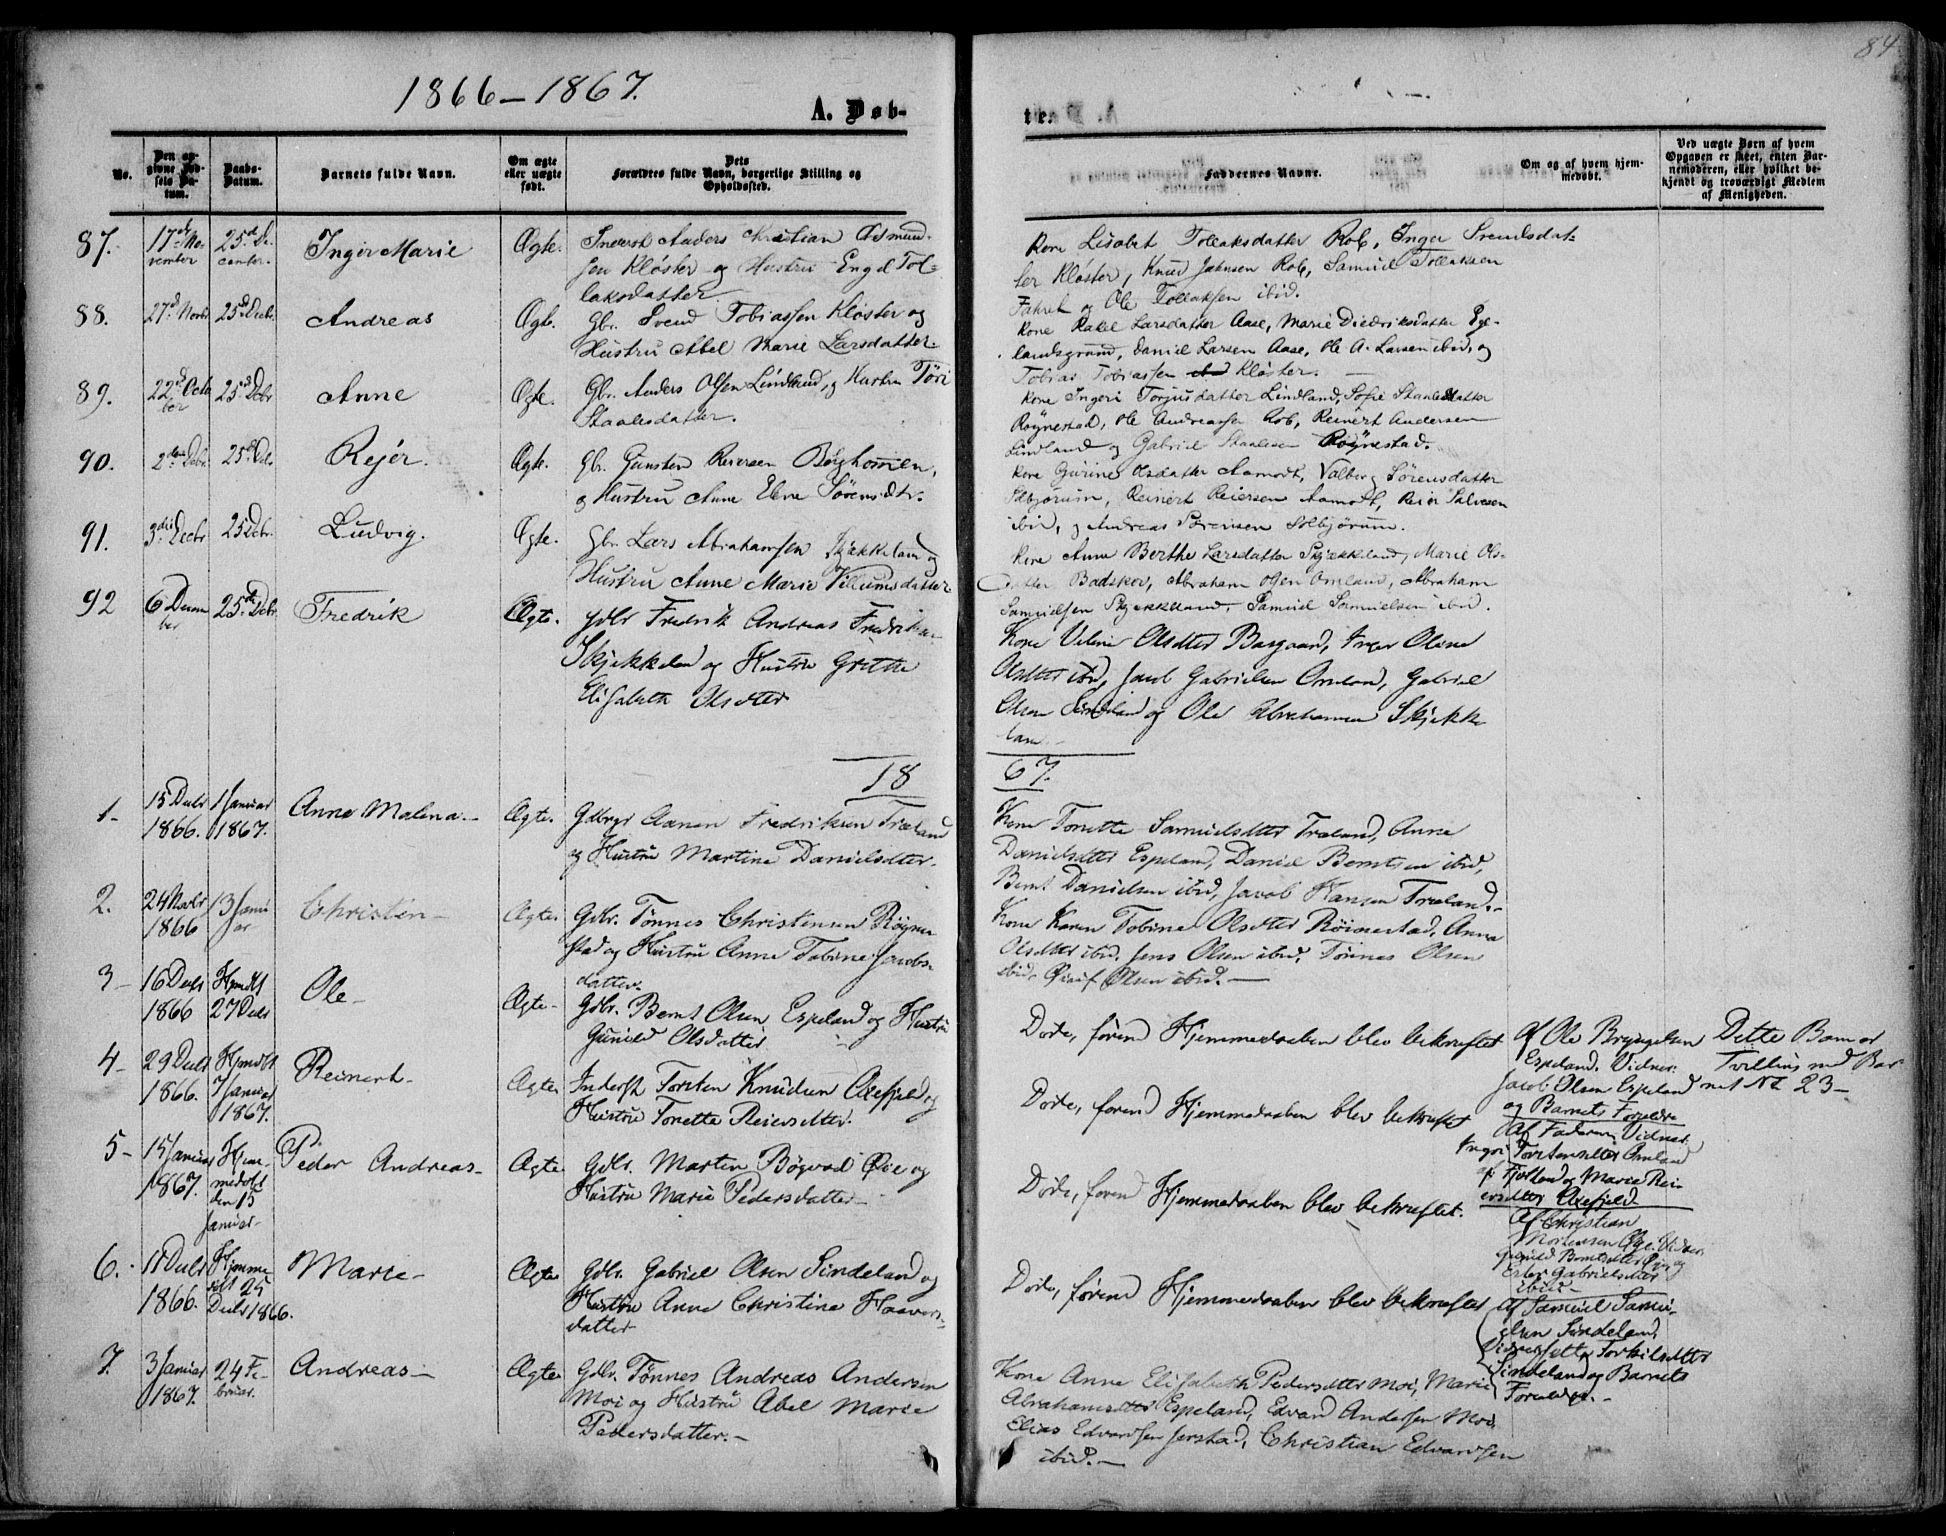 84
1866-1867.
A. Døb-
te.
No.
Den op-
givne Fød-
sels Da-
tum.
Daabs-
Datum.
Barnets fulde Navn.
Om ægte
eller uægte
født.
Dets
Forældres fulde Navn, borgerlige Stilling og
Opholdssted.
Faddernes Navne.
Om og af hvem hjem-
medøbt.
Ved uægte Børn af hvem
Opgaven er skeet, enten Bar-
nemoderen, eller hvilket be-
kjendt og troværdigt Medlem
af Menigheden.
87.
17de No-
vember
25d De-
cember.
Inger Marie
Ægte.
Inderst Anders Christian Asmund-
sen Kløster og Hustru Engel Tol-
laksdatter.
Kone Lisabet Tollaksdatter Rob, Inger Svendsdat-
ter Kløster, Knud Jahnsen Rob, Samuel Tollaksen
og Ole Tollaksen ibid.
88.
27d Novbr
25d Decbr.
Andreas
Ægte.
Gbr. Svend Tobiassen Kløster og
Hustru Abel Marie Larsdatter.
Kone Rakel Larsdatter Aase, Marie Diedriksdatter Ege-
landsgrund, Daniel Larsen Aase, Ole A. Larsen ibid, og
Tobias Tobiassen Kløster.
89.
22d Octo
ber
25d Debr
Anne
Ægte.
Gbr. Anders Olsen Lindland, og Hustru Töri
Staalesdatter.
Kone Ingeri Torjusdatter Lindland, Sofie Staalesdatter
Røynestad, Ole Andreassen Rob, Reinert Andersen
Lindland og Gabriel Staalesen Røynestad.
90.
2den Debr.
25d Debr.
Rejer.
Ægte.
Gbr. Gunsten Reiersen
og Hustru Anne Elene Sörensdtr.
Kone Gurine Olsdatter Aamodt, Valberg Sörensdatter
Reinert Reiersen Aamodt, Reier Salvesen
ibid, og Andreas Sørensen
91.
3die Decbr
25 Debr.
Ludvig.
Ægte.
Gbr. Lars Abrahamsen Skjekkeland og
Hustru Anne Marie Villumsdatter.
Kone Anne Berthe Larsdatter Skjækkeland, Marie Ols-
datter Badskov, Abraham Olsen Omland, Abraham
Samuelsen Skjækkeland, Samuel Samuelsen ibid.
92
6 Decem
ber
25d Debr.
Fredrik
Ægte.
Gdbr Fredrik Andreas Fredriksen
Skjekkelan og Hustru Grethe
Elisabeth Olsdtter
Kone Veline Olsdtter Basgaard, Inger Oline
Olsdtter ibid, Jacob Gabrielsen Omland, Gabriel
Olsen Sindeland og Ole Abrahamsen Skjekke
lan
18
67.
1-
15 Decbr
1866.
1 Januar
1867.
Anne Malena.-
Ægte.
Gdbrgr Aanen Fredriksen Træland
og Hustru Martine Danielsdtter.
Kone Tonette Samuelsdtter Træland, Anne
Danielsdtter Espeland, Daniel Berntsen ibid,
Bernt Danielsen ibid, Jacob Hansen Træland.
2.
24 Novbr
1866
13 Janu
ar
Christen-
Ægte
Gdbr. Tönnes Christensen Röyne-
stad og Hustru Anne Tobine Jacobs-
datter.
Kone Karen Tobine Olsdtter Röinestad, Anne
Olsdtter ibid, Jens Olsen ibid, Tönnes Olsen
ibid, Olsen ibid.-
3-
16 Decbr
1866
Hjmdbt
27 Decbr
Ole-
Ægte-
Gdbr. Bernt Olsen Espeland og Hustru
Gunild Olsdatter
Döde, førend Hjemmedaaben blev bekræftet
af Ole Brynjelsen
Espeland. Vidner:
Jacob Olsen Espeland
og Barnets Forældre
Dette Barn er
Tvilling med Bar
net No 23-
4-
29 Decbr
1866.
Hjmdbt
7 Januar
1867.
Reinert-
Ægte
Inderst Torsten Knudsen Øxefjeld og
Hustru Tonette Reiersdtter.
Döde, førend Hjemmedaaben blev bekræftet
Af Faderen, Vidner:
Inger Torstensdtter Omland
af Fjotland og Marie Rei-
ersdtter Øxefjeld
5-
15 Januar
1867.
Hjem-
medöbt
den 15
Januar.
Peder Andreas-
Ægte
Gdbr. Morten Bögvad Øie og
Hustru Marie Pedersdatter-
Döde, førend Hjemmedaaben blev bekræftet.
Af Christian
Mortensen Øye. Vidner:
Gunild Berntsdtter Øie og
Ester Gabrielsdtter
ibid-
6.
11 Decbr
1866.
Hjemme
döbt 25
Decbr 1866.
Marie-
Ægte
Gdbr. Gabriel Olsen Sindeland og
Hustru Anne Christine Haavers-
datter
Döde, førend Hjemmedaaben blev bekræftet
af Samuel Samu-
elsen Sindeland,
Torkilsdtter
Sindeland og Barnets
Forældre.-
7.
3 Januar
1867.
24 Fe-
bruar.
Andreas-
Ægte
Gdbr. Tönnes Andreas Andersen
Moi og Hustru Abel Marie
Pedersdatter.-
Kone Anne Elisabeth Pedersdtter Moi, Marie
Abrahamsdtter Espeland, Edvard Andersen Moi,
Elias Edvardsen Jerstad, Christian Edvardsen
ibid.-